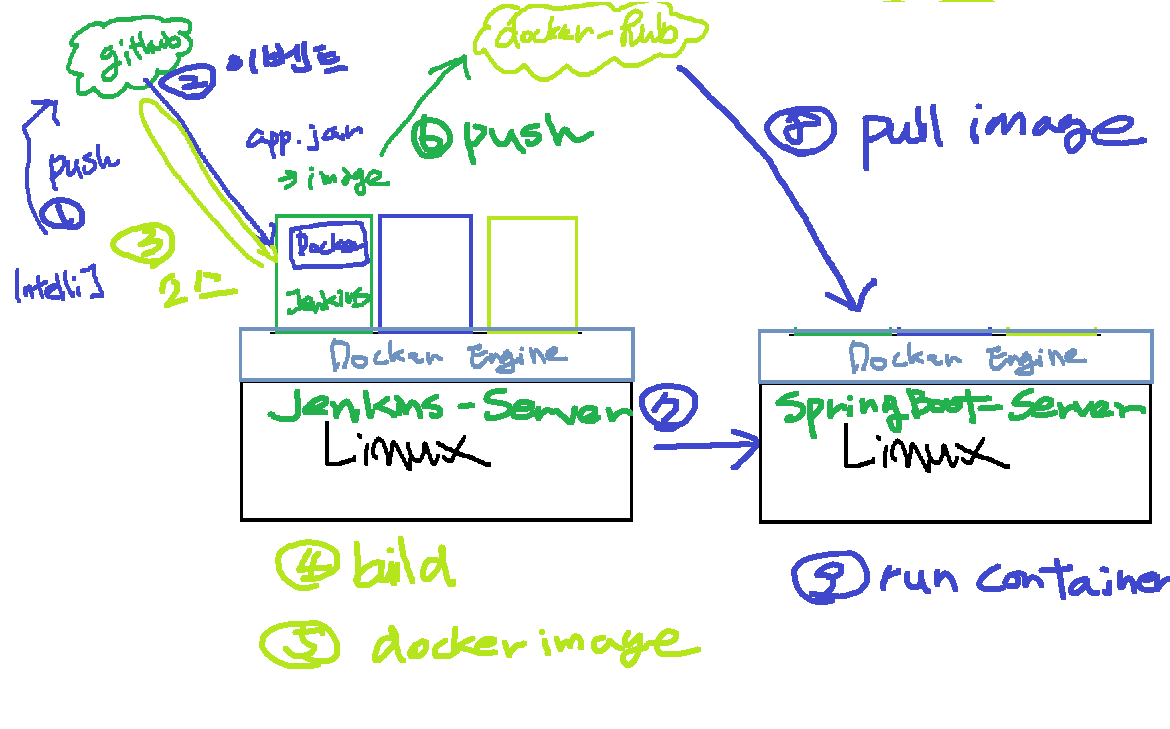 github
② 이벤트
docker-hub
① push
IntelliJ
③
app.jar
→ image
⑥ push
⑧ pull image
Docker
Jenkins
Docker Engine
Jenkins-Server
Linux
⑦
Docker Engine
SpringBoot-Server
Linux
④ build
⑤ docker image
⑨ run container